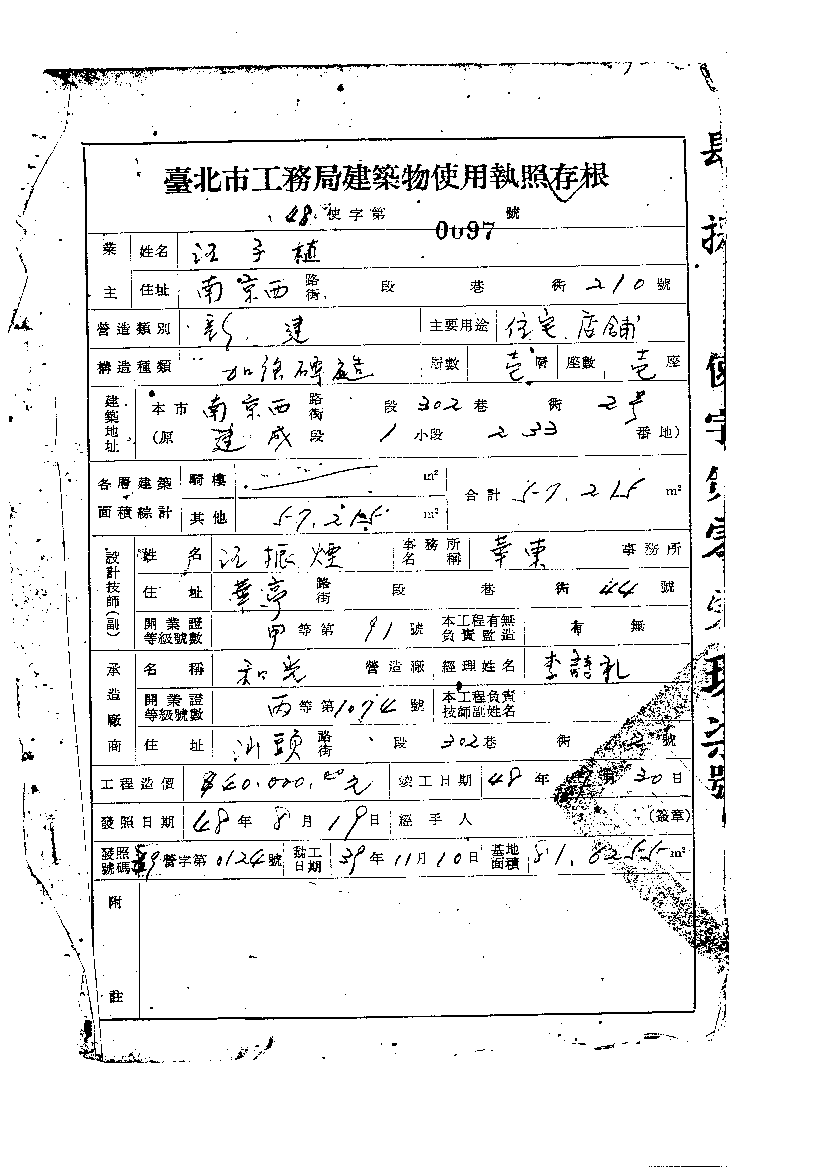 臺北市工務局建築物使用執照存根
48 使字第 0097 號
業主 姓名 汪子植
住址 南京西 路街 段 巷 街 210 號
營造類別 新建 主要用途 住宅店舖
構造種類 加強磚造 層數 壱層 座數 壱座
建築地址 本市 南京西 路街 段 302 巷 街 2号
(原 建成 段 1 小段 233 番地)
各層建築面積綜計 騎樓 m² 合計 57.215 m²
其他 57.215 m²
設計技師(副) 姓名 汪振煙 事務所名稱 華東 事務所
住址 華亭 路街 段 巷 街 44 號
開業證等級號數 甲等第 91 號 本工程有無負責監造 有 無
承造廠商 名稱 和光 營造廠 經理姓名 李詩礼
開業證等級號數 丙等第 1074 號 本工程負責技師副姓名
住址 汕頭 路街 段 302 巷 街 2 號
工程造價 $40.000.00元 竣工日期 48年 月30日
發照日期 48年8月19日 經手人 (簽章)
發照號碼 39營字第0124號 動工日期 39年11月10日 基地面積 81.8255 m²
附註